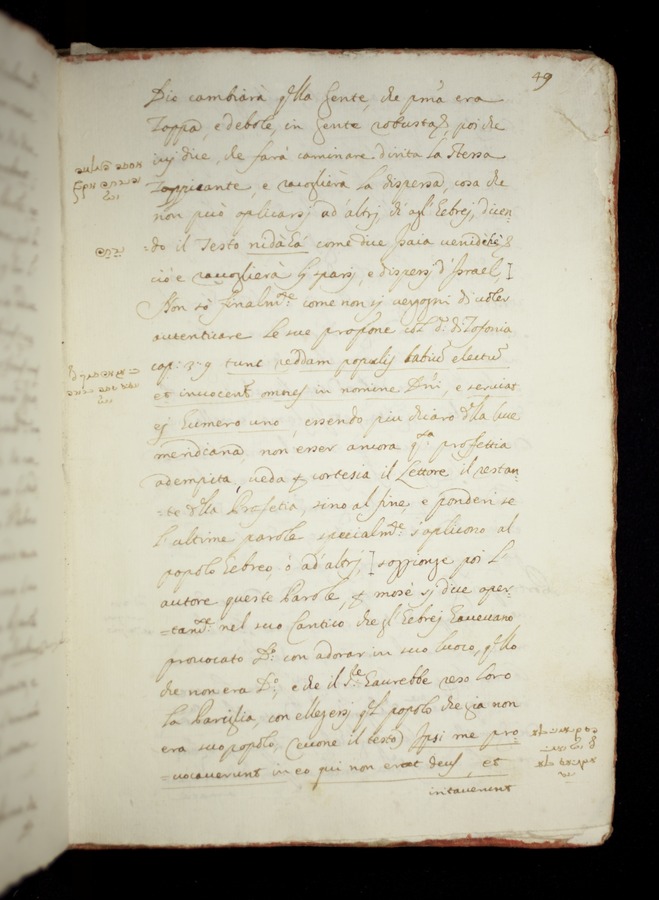 49
Dio cambiarà q.lla Gente, che p.ma era
Zoppa, e debole, in Gente robusta, poi che
ivj dice, che farà caminare dirita la stessa
Zoppicante, e racoglierà la dispersa, cosa che
non può aplicarsj ad' altrj che agl' Eebrej, dicen-
=do il Testo nidachà come due Isaia
cio è racoglierà gl' sparsj, e dispersj d' Israel]
Non sò finalm.te come non si vergogni di voler
autenticare le sue propone col d.º di Zofonia
cap: 3. 9 tunc reddam populis labium electum
et invocent omnes in nomine Dnj, e serviat
ej humero uno, essendo piu chiaro d.lla luce
meridiana, non esser ancora q.sta proffettia
adempita, veda p cortesia il Lettore il restan-
=te d.lla Profetia, sino al fine, e ponderi se
l' ultime parole specialm.te s'aplicono al
popolo Eebreo, ò ad' altrj,] soggionge poi l'
autore queste Parole, p mosè sj dice aper-
=tam.te nel suo Cantico che gl' Eebrej haveuano
provocato D.º con adorar in suo luoco, q.llo
che non era D.º, e che il S.re haurebbe reso loro
la Pariglia, con ellegersj q.l popolo che gia non
era suo popolo, (euone il testo) Ipsi me pro-
=vocaverunt in eo qui non erat deus, et
iritaverunt